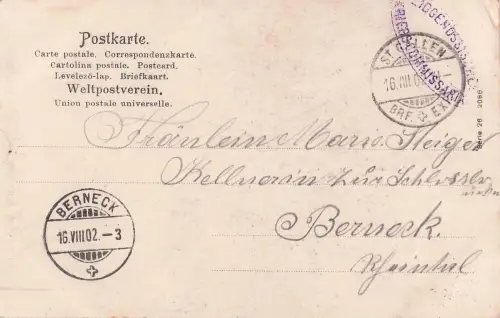 Postkarte.
Carte postale. Correspondenzkarte.
Cartolina postale. Postcard.
Levelező-lap. Briefkaart.
Weltpostverein.
Union postale universelle.
ST. GALLEN
16.VIII.02.
BRF. EXP.
KRIEGSCOMMISSARIAT
Serie 26
Fräulein Marie Steiger
Kellnerin zur Schlossler
Berneck.
Rheintal
BERNECK
16.VIII.02.–3